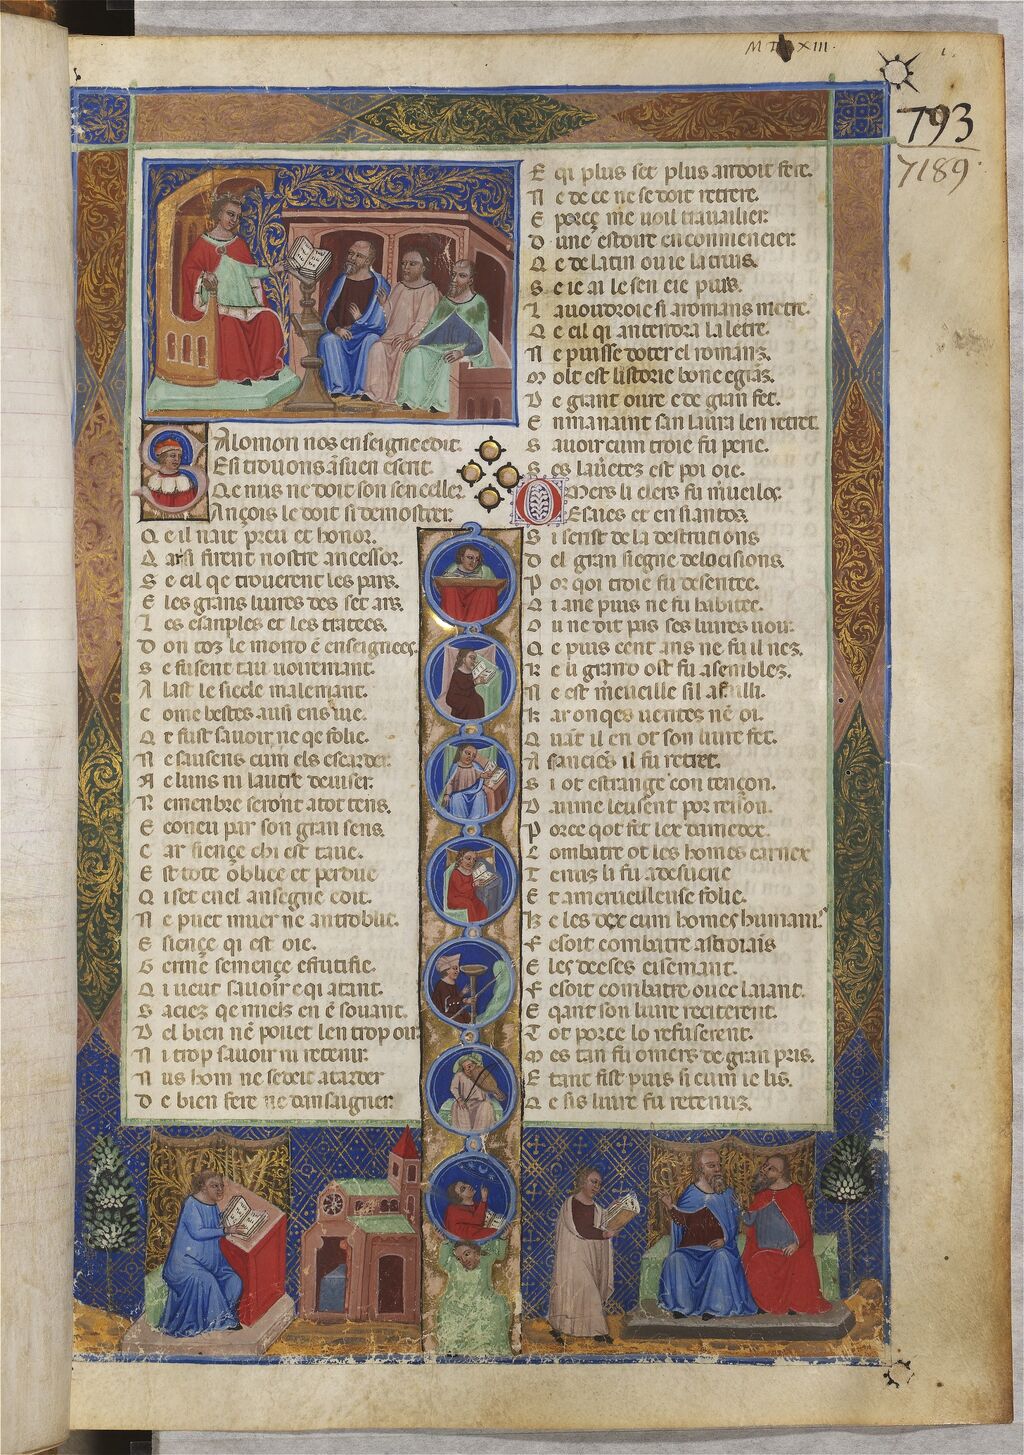 MD XIII.
1.
793
7189
SAlomon nos enseigne e dit.
E si trouons ansuen escrit.
Qe nus ne doit son sen celler.
Ançois le doit si demostrer.
Qe il nait preu et honor.
Q arsi firent nostre ancessor.
S e cil qe trouerent les pars.
E les grans liures des set ars.
L es esanples et les tratees.
D on toz le mond enseignees.
S e fusent tau
A last le siecle malemant.
C ome bestes ausi ens uie.
Q e fust sauoir ne qe folie.
N e sausens cum els esgarder
N e luns ni lautre deuiser.
R emenbre seront atot tens.
E coneu par son gran sens.
C ar siençe chi est taue.
E st tote obliee et perdue
Q i set en el ansegne e dit.
N e puet muer ne antroblie.
E siençe qi est oie.
G erme semençe e frutifie.
Q i ueut sauoir e qi atant.
S aciez qe miels en é souant.
D el bien né poüet len trop oir
N i trop sauoir ni retenir
N us hom ne sedeit atarder
D e bien fere ne dansaigner.
E qi plus set plus an doit fere.
N e de ce ne se doit retrere.
E porce me uoil trauailier
D une estoire en conmencier.
Q e de latin ou ie la truis.
S e ie ai le sen e ie puis.
L a uoudroie si aromans metre.
Q e cil qi antendra la letre.
N e puisse doter el romanz.
M olt est listorie bone e gras.
D e grant oure e de gran fet.
E nmanaint san laura len retret
S auoir cum troie fu perie.
S es la uertez est poi oie.
OMers li clers fu mueiloz
E saies et en siantoz
S i scrist de la destrutions
D el gran siegne de locisions.
P or qoi troie fu desertee.
Q i anc puis ne fu habitee.
D u ne dit pas ses liures uoir.
Q e puis cent ans ne fu il nez.
K e li grand ost fu asemblez.
N e est meueille sil afailli.
K ar onqes uerites né oi.
Q uat il en ot son liure fet.
A sancies il fu retret.
S i ot estrange con tençon.
D anme leusent por reison.
P orce qot fet lex damedex
C ombatre ot les homes carnex
T enuz li fu a desuerie
E t a merueilleuse folie.
K e les dex cum homes humans
F esoit combatre as troians
E les deeses eisemant.
F esoit combatre ouec la iant.
E qant son liure reciterent.
T ot porce lo refuserent.
M es tan fu omers de gran pris.
E tant fist puis si cum ie lis.
Q e sis liure fu retenuz.